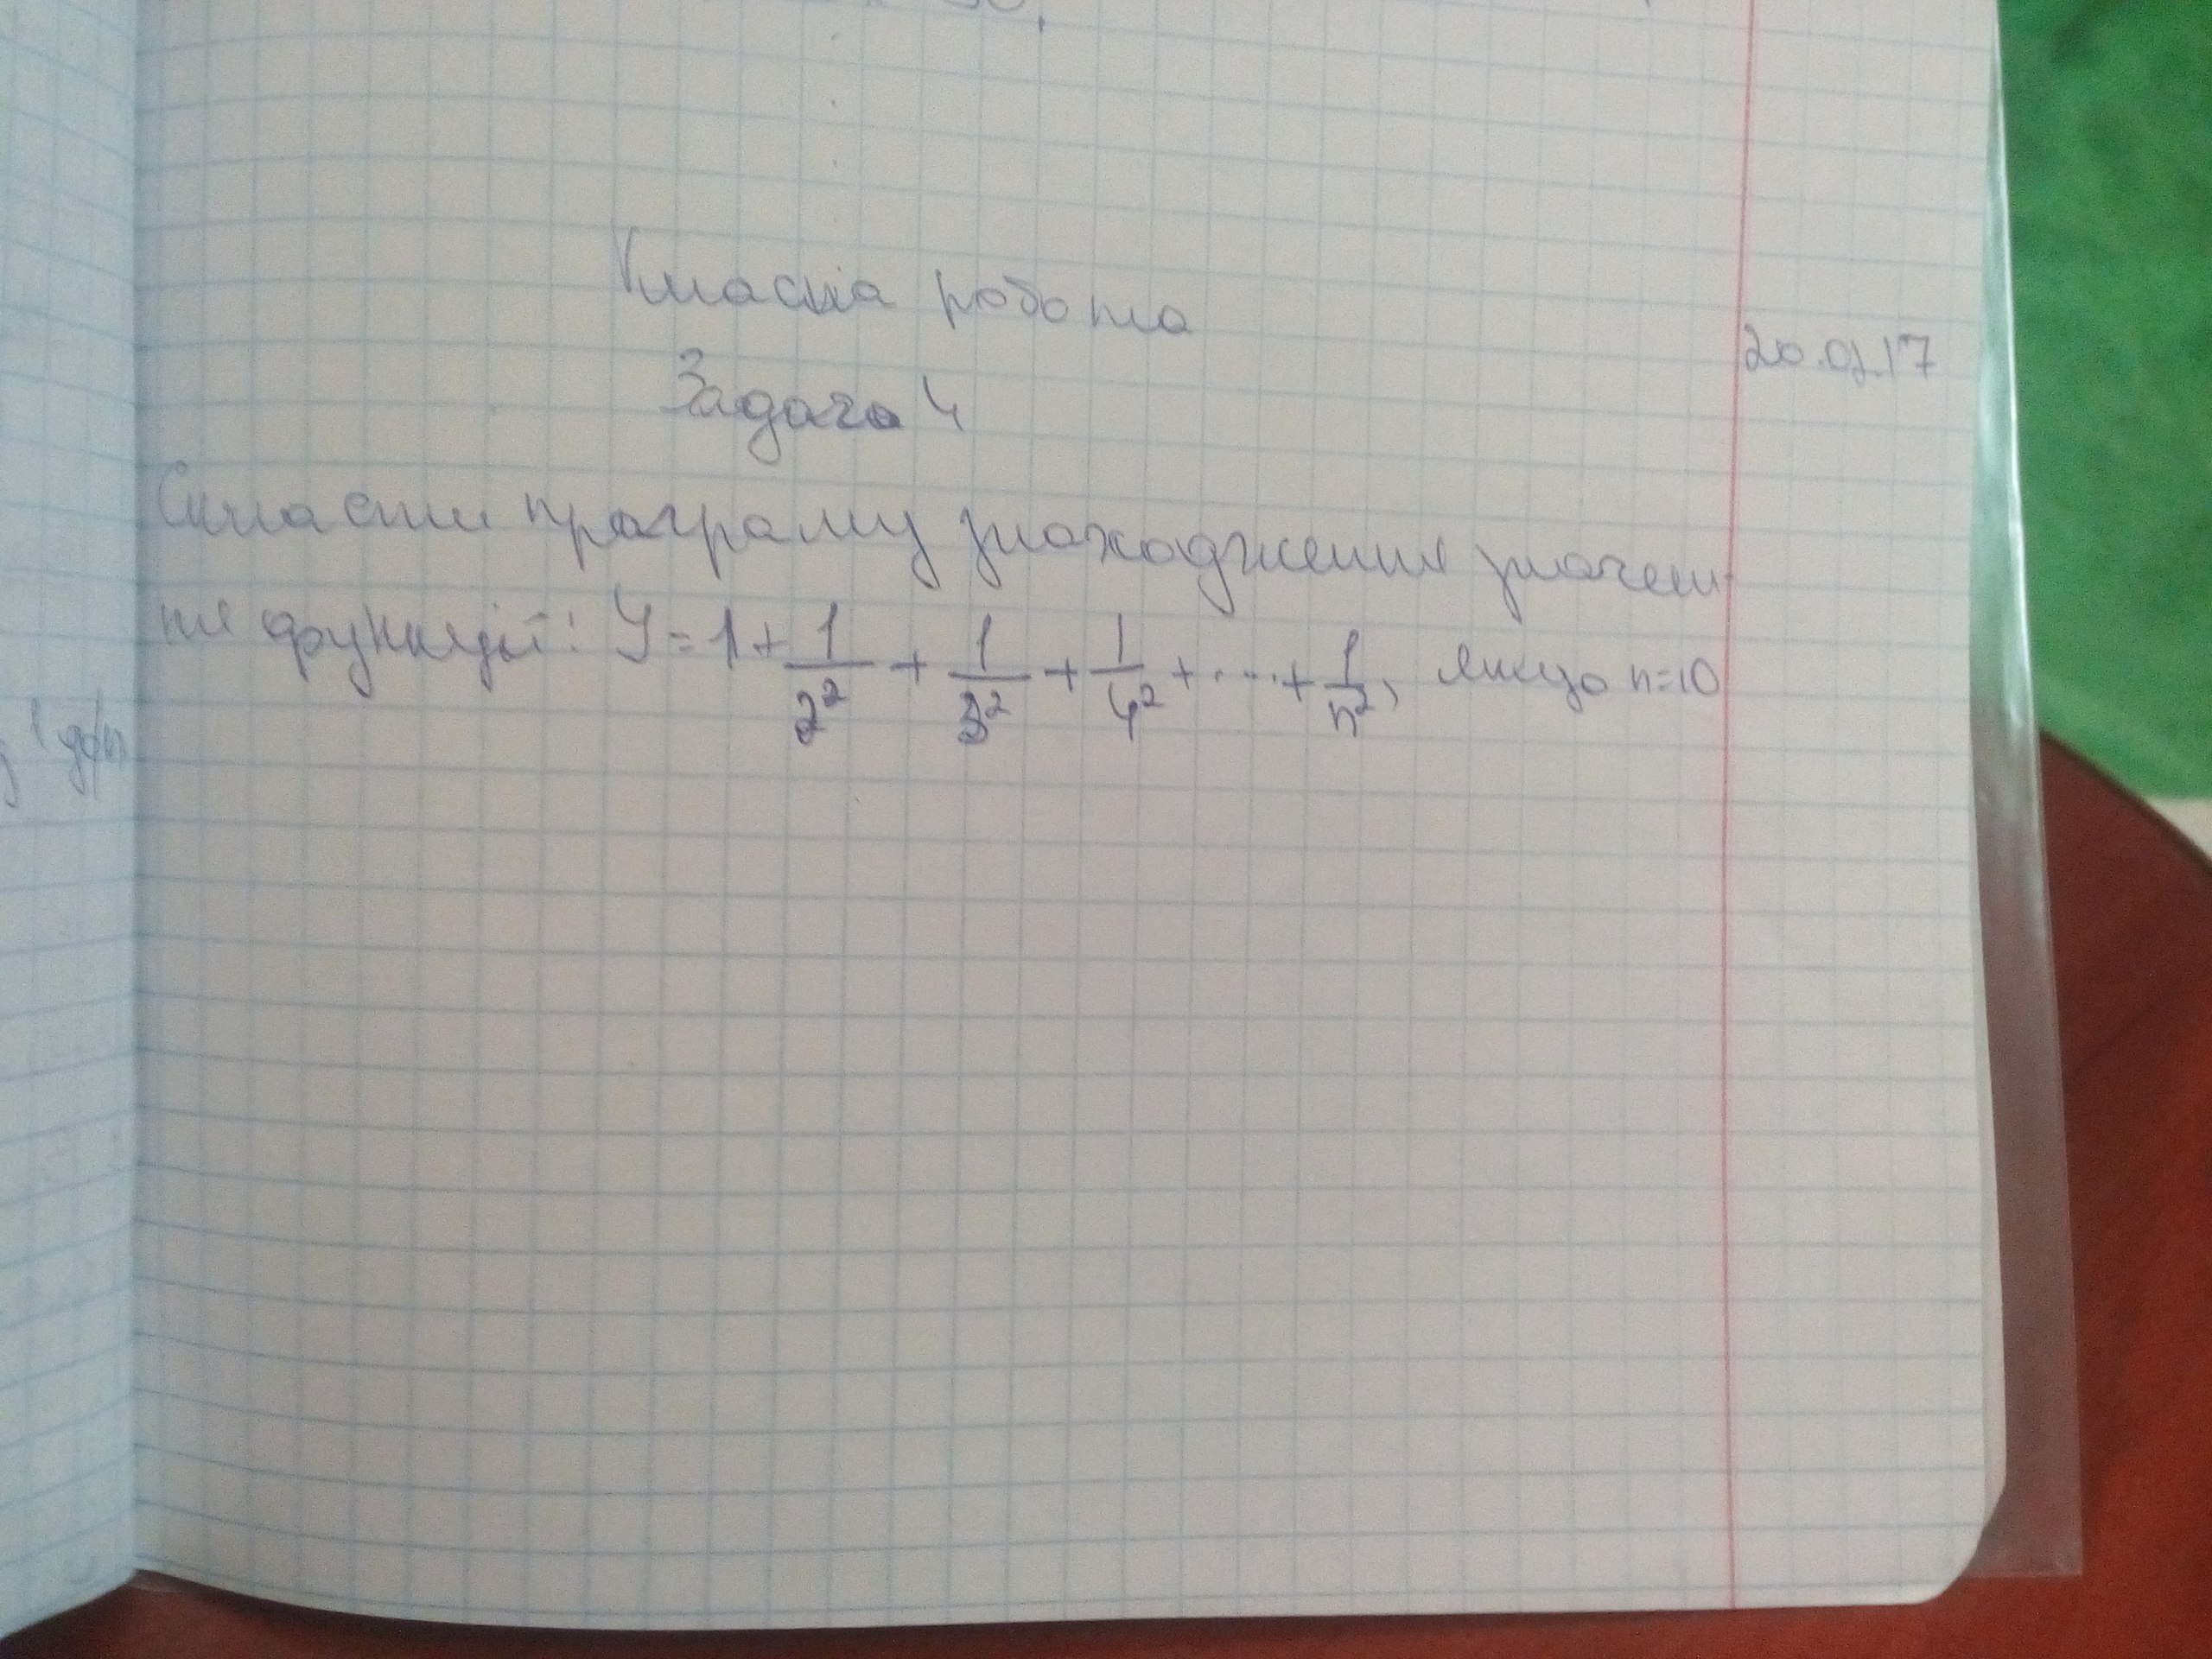 Класна робота
20.01.17
Задача 4
Скласти програму знаходження значен
ня функції: У=1+1/2²+1/3²+1/4²+....+1/n², якщо n=10